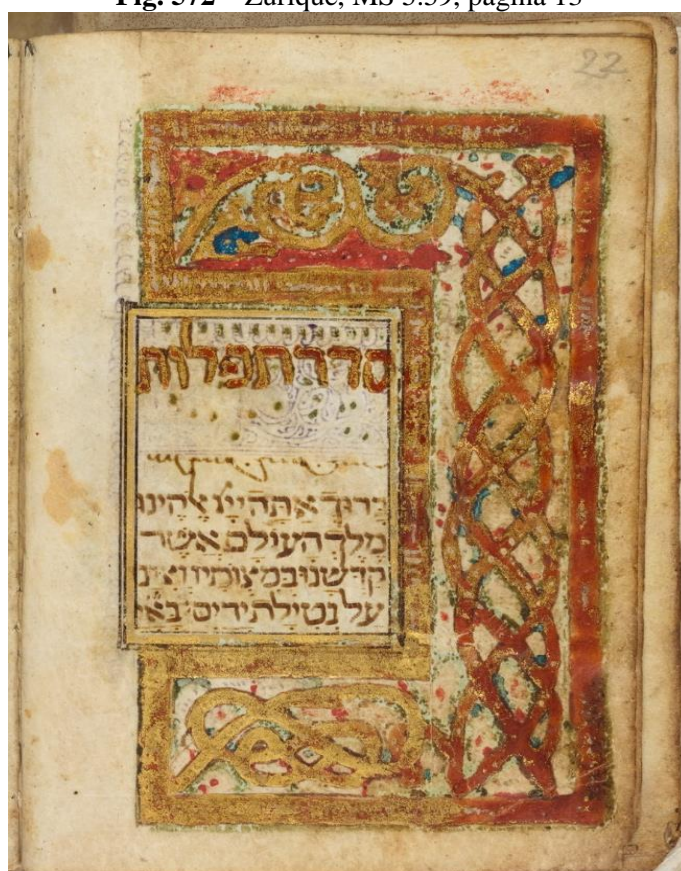 Fig. 572 – Zurique, MS 5.59, página 13
22
סדר תפלות
ברוך אתה ייי אלהינו
מלך העולם אשר
קדשנו במצותיו
על נטילת ידים